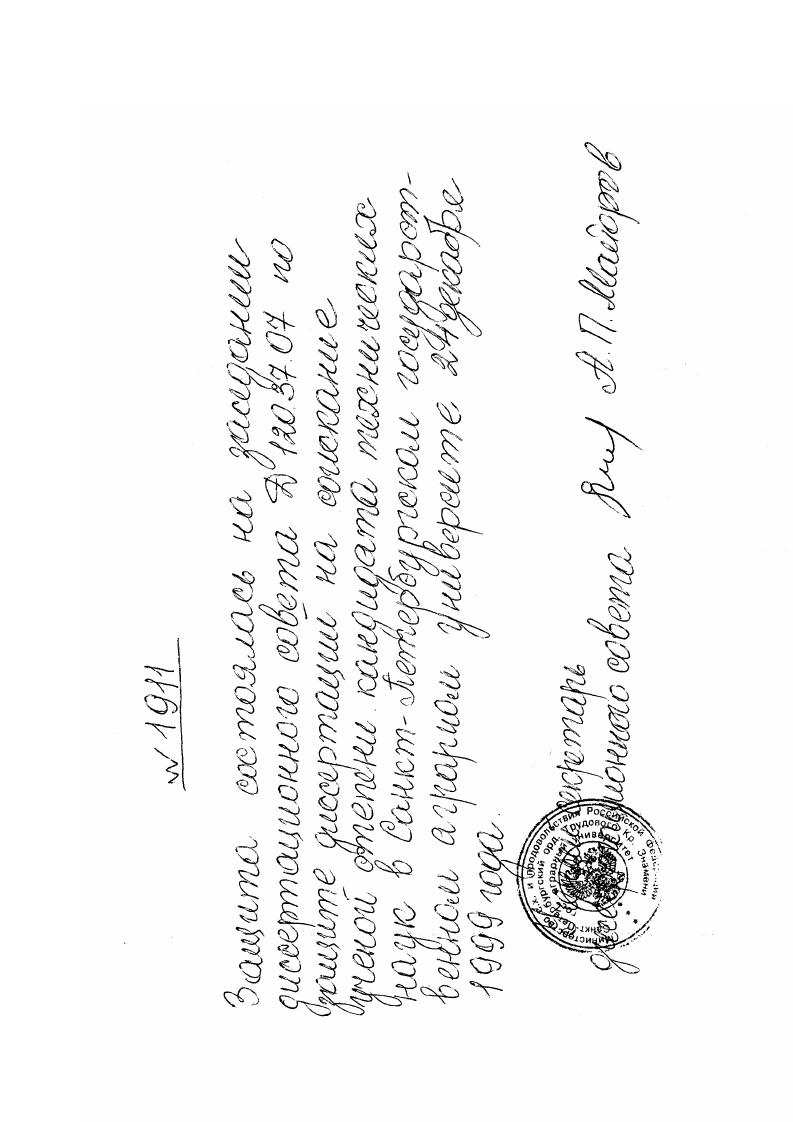 № 1911
Защита состоялась на заседании
диссертационного совета Д 120.37.07 по
защите диссертаций на соискание
ученой степени кандидата технических
наук в Санкт-Петербургском государст-
венном аграрном университете 24 декабря
1999 года.
секретарь
ионного совета А.П. Майоров
Министерство с.х. и продовольствия Российской Федерации
Санкт-Петербургский орд. Трудового Кр. Знамени
гос. аграрный университет